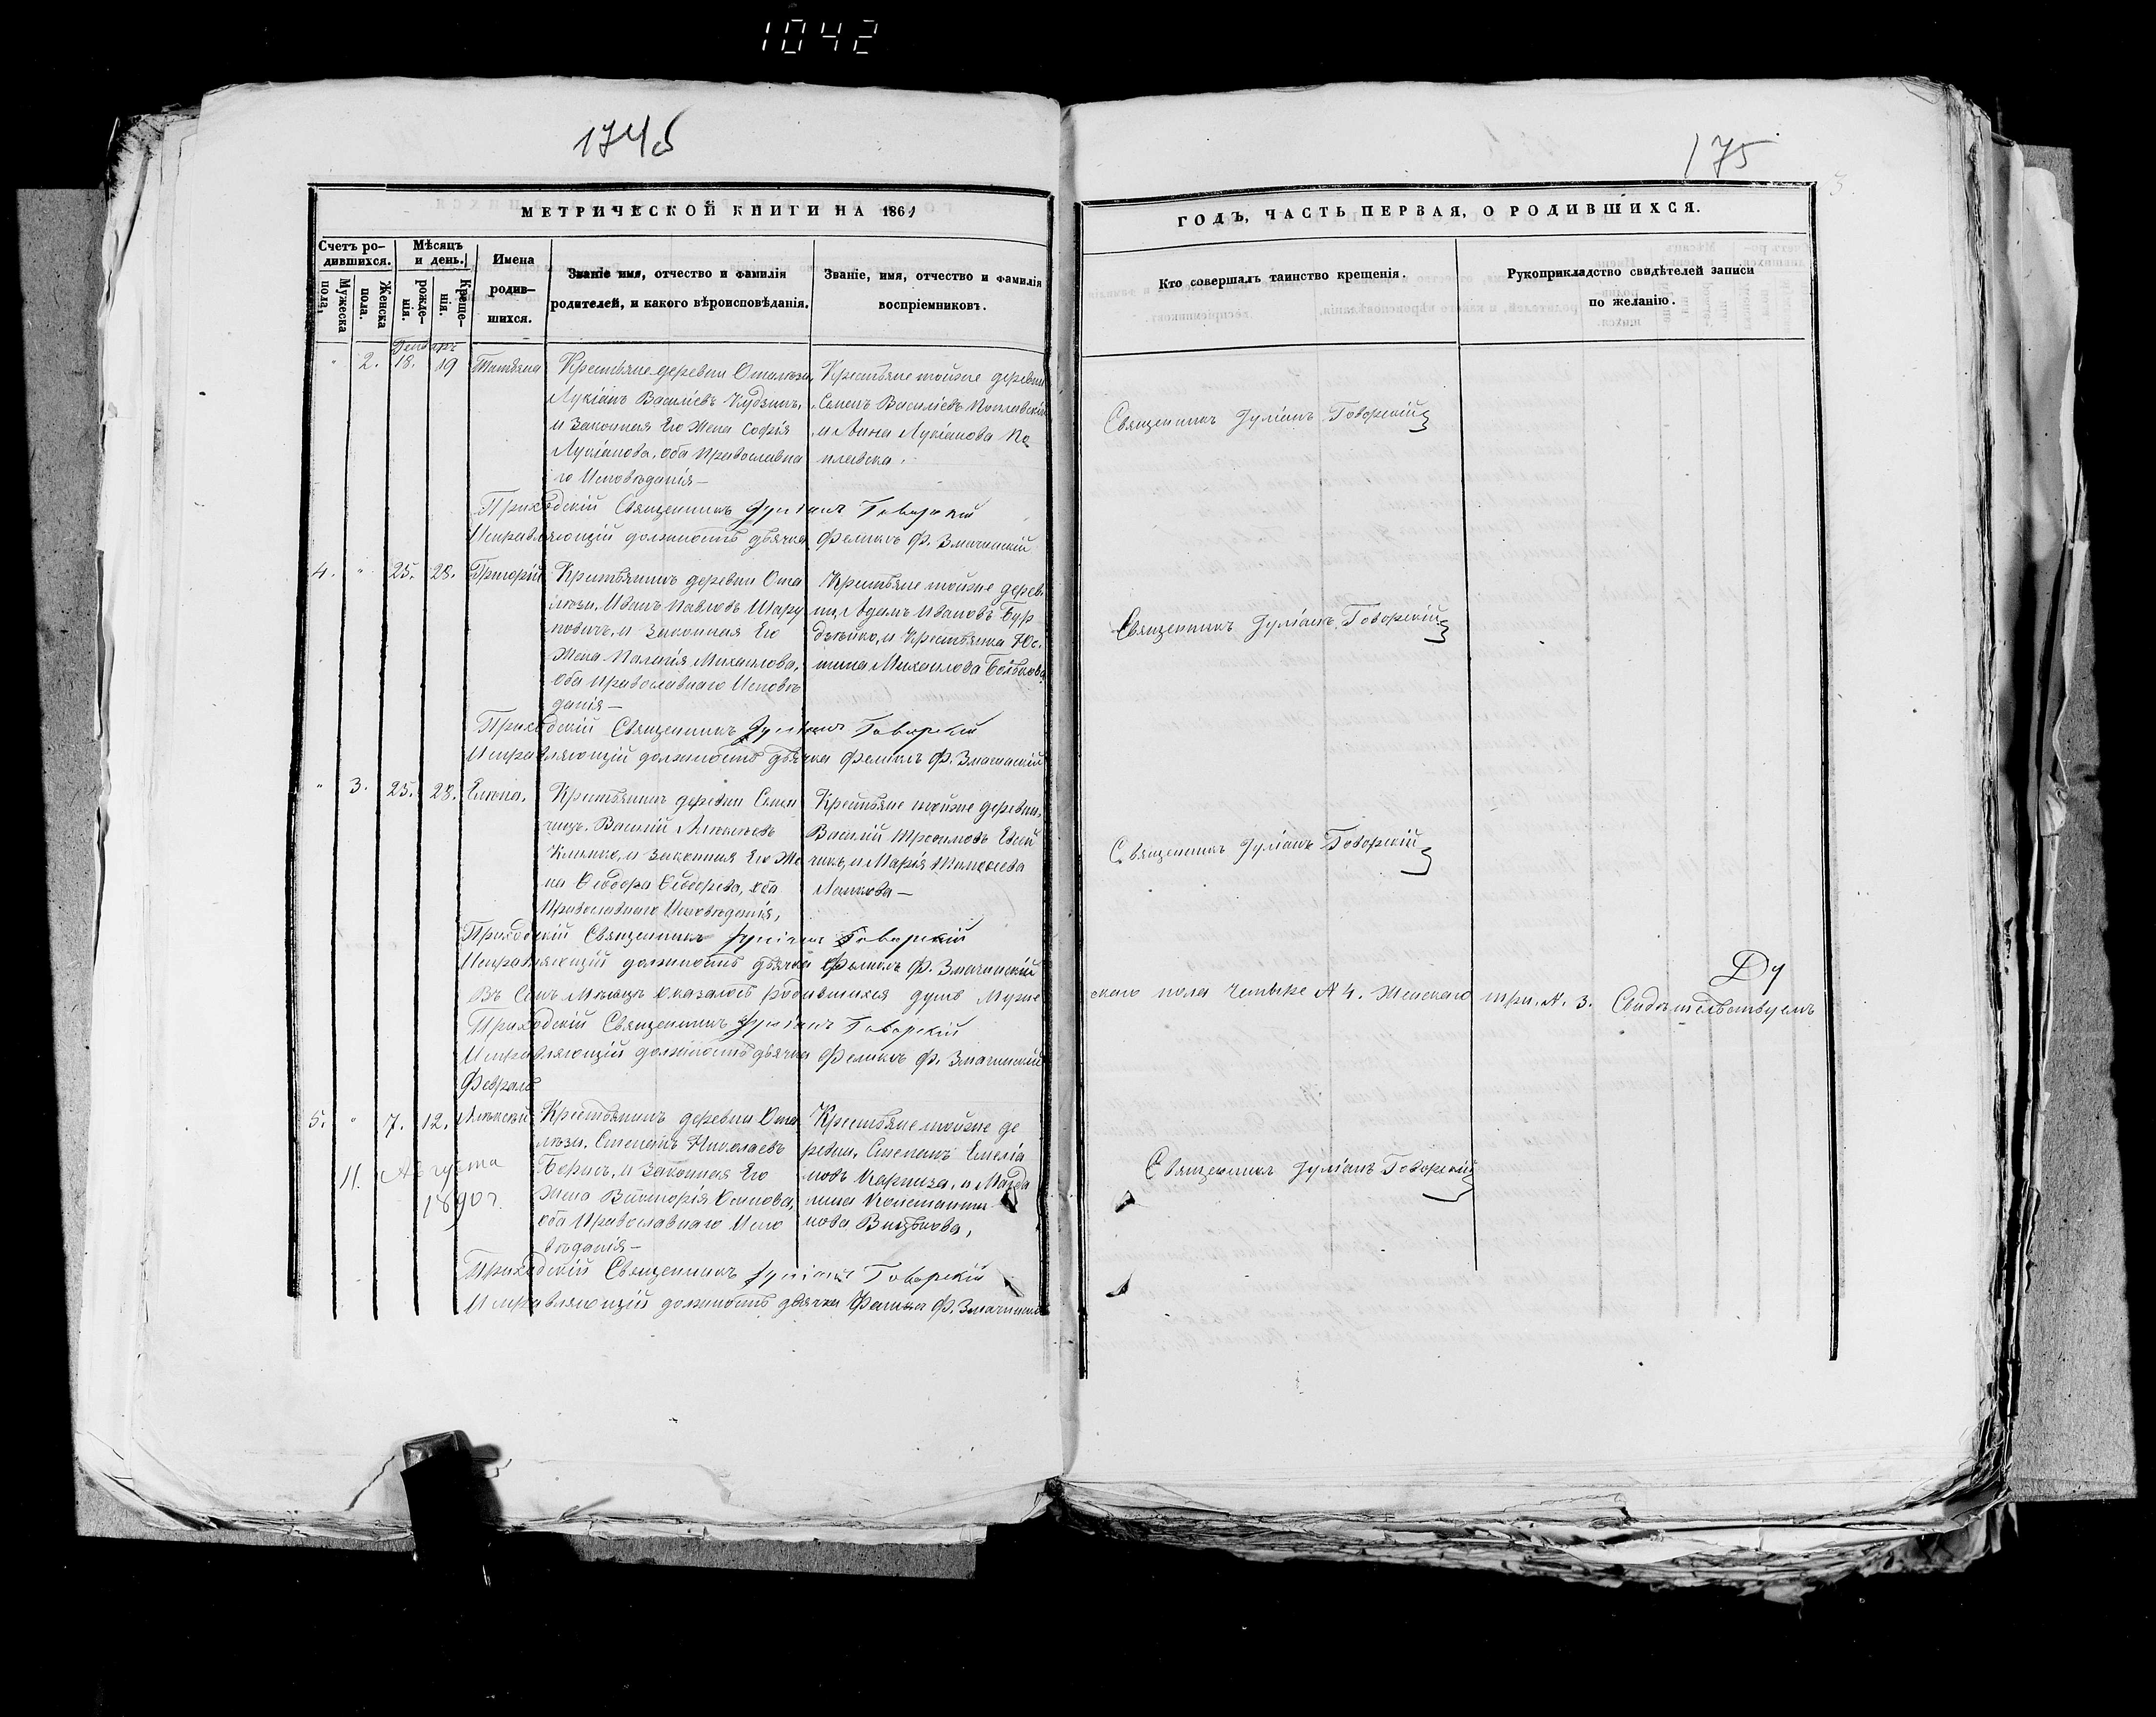 1042
174б
175
3.
МЕТРИЧЕСКОЙ КНИГИ НА 1861
ГОДЪ, ЧАСТЬ ПЕРВАЯ, О РОДИВШИХСЯ.
Счетъ ро-
дившихся.
Мужеска
пола.
Женска
пола.
Мѣсяцъ
и день.
рожде-
нія.
Креще-
нія.
Имена
родив-
шихся.
Званіе имя, отчество и фамилія
родителей, и какого вѣроисповѣданія.
Званіе, имя, отчество и фамилія
воспріемниковъ.
Кто совершалъ таинство крещенія.
Рукоприкладство свидѣтелей записи
по желанію.
" 2. 18. 19 Татьяна
Крестьяне деревни
Лукіанъ Василіевъ
и Законная Его Жена Софія
Лукіанова, оба Православна
го Исповѣданія—
Крестьяне тойже деревни
Семенъ Василіевъ Поплавскій
и Анна Лукіанова По
плавска.
Священникъ Іуліанъ Говорскій
Приходскій Священникъ Іуліанъ Говорскій
Исправляющій должность дьячка Феликсъ Ф.
4. " 25. 28. Григорій
Крестьянинъ деревни
Иванъ Павловъ Шару
новичъ, и Законная Его
Жена Палагія Михаилова,
оба Православнаго Исповѣ
данія—
Крестьяне тойже дерев
ни, Адамъ Ивановъ Бур
и Крестьянка Юс
тина Михаилова
Священникъ Іуліанъ Говорскій
Приходскій Священникъ Іуліанъ Говорскій
Исправляющій должность дьячка Феликсъ Ф.
" 3. 25. 28. Елена.
Крестьянинъ деревни Семен
Василій
Климко, и Законная Его Же
на Ѳеодора Ѳеодорова, оба
Православнаго Исповѣданія,
Крестьяне тойже деревни,
Василій Трофимовъ
и Марія Тимофеева
Священникъ Іуліанъ Говорскій
Приходскій Священникъ Іуліанъ Говорскій
Исправляющій должность дьячка Феликсъ Ф.
Въ Семъ Мѣсяцѣ Оказалось родившихся душъ Муже
скаго пола Четыре № 4. Женскаго три, №. 3. Свидѣтельствуемъ
Ду
Приходскій Священникъ Іуліанъ Говорскій
Исправляющій должность дьячка Феликсъ Ф.
Февраль
5. " 7. 12. Алексѣй
Крестьянинъ деревни
Степанъ Николаевъ
и Законная Его
Жена Викторія Осипова,
оба Православнаго Испо
вѣданія—
Крестьяне тойже де
ревни, Степанъ Емелія
новъ и Магда
лина Константи
нова
Священникъ Іуліанъ Говорскій
11. Августа
1890 г.
Приходскій Священникъ Іуліанъ Говорскій
Исправляющій должность дьячка Феликсъ Ф.